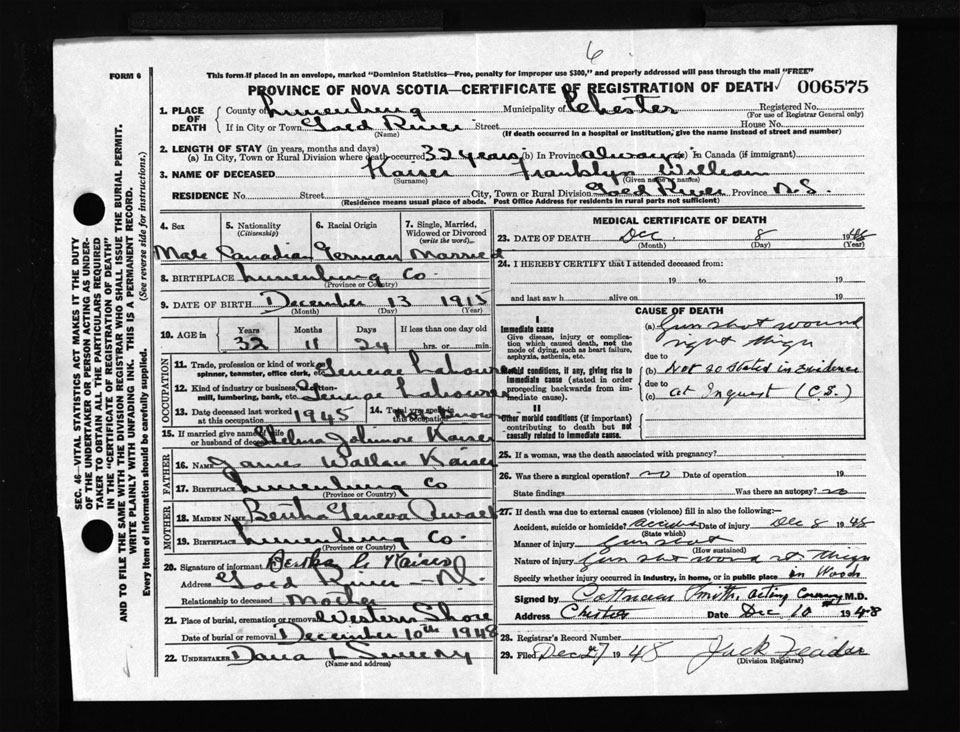 6
FORM 6
This form if placed in an envelope, marked "Dominion Statistics—Free, penalty for improper use $300," and properly addressed will pass through the mail "FREE"
PROVINCE OF NOVA SCOTIA—CERTIFICATE OF REGISTRATION OF DEATH 006575
1. PLACE OF DEATH
County of Lunenburg Municipality of Chester Registered No.
(For use of Registrar General only)
If in City or Town Gold River Street House No.
(Name) (If death occurred in a hospital or institution, give the name instead of street and number)
2. LENGTH OF STAY (in years, months and days)
(a) In City, Town or Rural Division where death occurred 32 years (b) In Province always (c) In Canada (if immigrant)
3. NAME OF DECEASED Kaiser Franklyn William
(Surname) (Given name or names)
RESIDENCE No. Street City, Town or Rural Division Gold River Province N.S.
(Residence means usual place of abode. Post Office Address for residents in rural parts not sufficient)
4. Sex 5. Nationality (Citizenship) 6. Racial Origin 7. Single, Married, Widowed or Divorced (write the word)
Male Canadian German Married
8. BIRTHPLACE Lunenburg Co.
(Province or Country)
9. DATE OF BIRTH December 13 1915
(Month) (Day) (Year)
10. AGE in Years Months Days If less than one day
32 11 24 hrs. or min.
OCCUPATION
11. Trade, profession or kind of work as spinner, teamster, office clerk, etc. General Labourer
12. Kind of industry or business, as cotton-mill, lumbering, bank, etc. General Labourer
13. Date deceased last worked at this occupation 1945 14. Total yrs. spent in this occupation Not Known
15. If married give name of wife or husband of deceased Johnnore Kaiser
FATHER
16. NAME James Wallace Kaiser
17. BIRTHPLACE Lunenburg Co
(Province or Country)
MOTHER
18. MAIDEN NAME Bertha Geneva
19. BIRTHPLACE Lunenburg Co.
(Province or Country)
20. Signature of informant Bertha G Kaiser
Address Gold River N.S.
Relationship to deceased Mother
21. Place of burial, cremation or removal Western Shore
Date of burial or removal December 10th 1948
22. UNDERTAKER Dana L Sweeny
(Name and address)
MEDICAL CERTIFICATE OF DEATH
23. DATE OF DEATH Dec. 8 1948
(Month) (Day) (Year)
24. I HEREBY CERTIFY that I attended deceased from:
19 to 19
and last saw h alive on 19
CAUSE OF DEATH
I
Immediate cause
Give disease, injury or complication which caused death, not the mode of dying, such as heart failure, asphyxia, asthenia, etc.
(a) Gun shot wound right thigh
due to
Morbid conditions, if any, giving rise to immediate cause (stated in order proceeding backwards from immediate cause).
(b) Not so stated in Evidence
due to
(c) at Inquest (C.S.)
II
Other morbid conditions (if important) contributing to death but not causally related to immediate cause.
25. If a woman, was the death associated with pregnancy?
26. Was there a surgical operation? no Date of operation 19
State findings Was there an autopsy? no
27. If death was due to external causes (violence) fill in also the following:—
Accident, suicide or homicide? accident Date of injury Dec 8 1948
(State which)
Manner of injury Gun shot
(How sustained)
Nature of injury Gun shot wound rt thigh
Specify whether injury occurred in industry, in home, or in public place in Woods
Signed by Cottnam Smith, acting Coroner M.D.
Address Chester Date Dec 10 1948
28. Registrar's Record Number
29. Filed Dec 27 1948 Jack
(Division Registrar)
SEC. 46—VITAL STATISTICS ACT MAKES IT THE DUTY
OF THE UNDERTAKER OR PERSON ACTING AS UNDER-
TAKER TO OBTAIN ALL THE PARTICULARS REQUIRED
IN THE "CERTIFICATE OF REGISTRATION OF DEATH"
AND TO FILE THE SAME WITH THE DIVISION REGISTRAR WHO SHALL ISSUE THE BURIAL PERMIT.
WRITE PLAINLY WITH UNFADING INK. THIS IS A PERMANENT RECORD.
Every item of information should be carefully supplied. (See reverse side for instructions.)